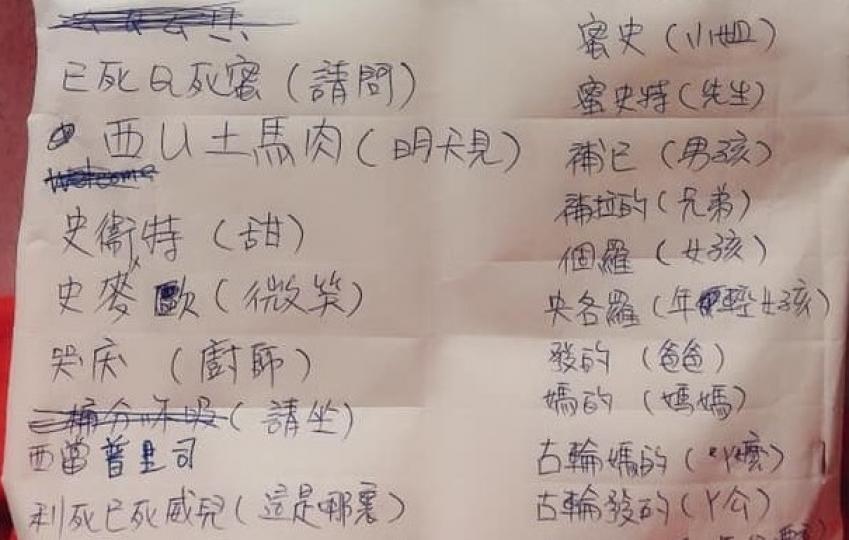 已死Q死蜜（請問）
西U土馬肉（明天見）
Welcome
史衞特（甜）
史麥歐（微笑）
哭庆（廚師）
（請坐）
西當普里司
利死已死威兒（這是哪裏）
蜜史（小姐）
蜜史特（先生）
補已（男孩）
補拉的（兄弟）
個羅（女孩）
央各羅（年輕女孩）
發的（爸爸）
媽的（媽媽）
古輪媽的
古輪發的（丫公）